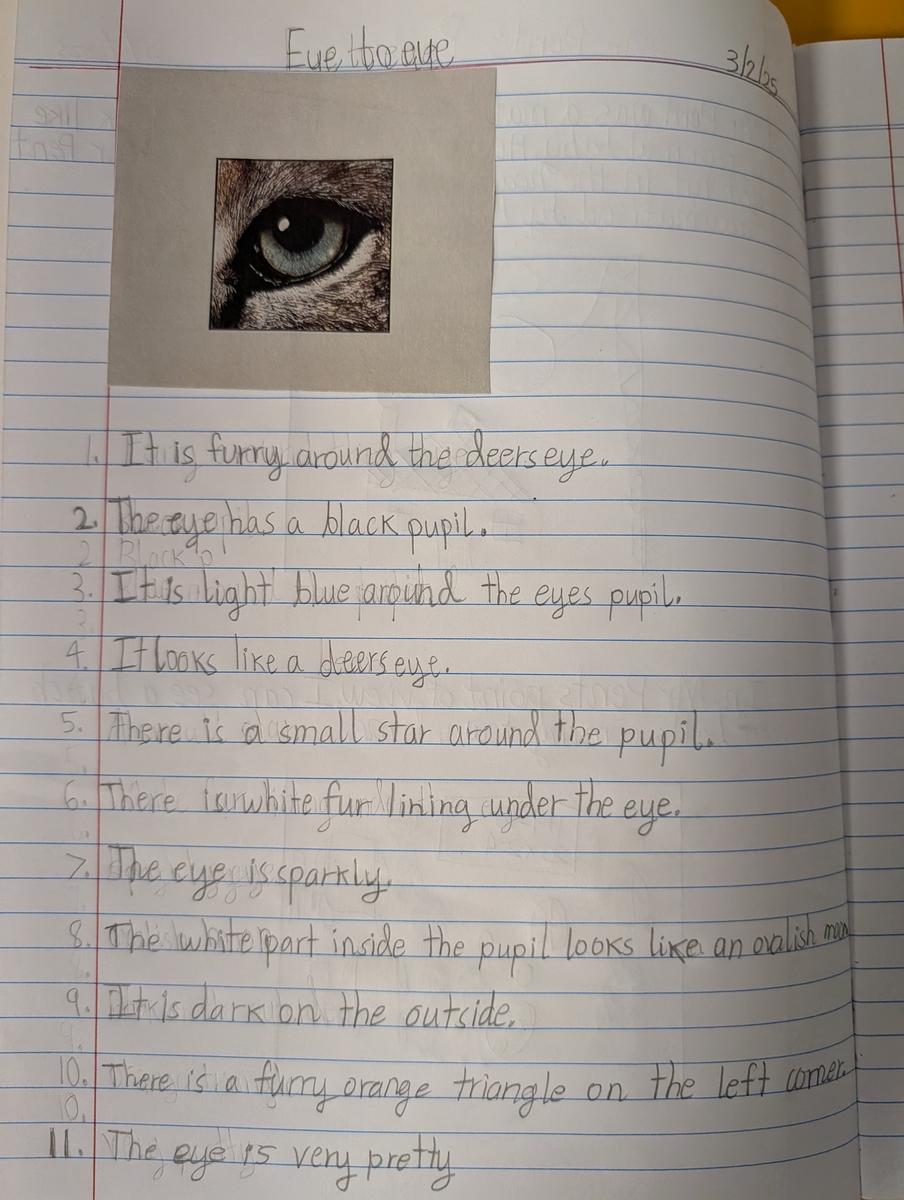 Eye to eye
3/2/25
1. It is furry around the deers eye.
2. The eye has a black pupil.
3. It is light blue around the eyes pupil.
4. It looks like a deers eye.
5. There is a small star around the pupil.
6. There is white fur lining under the eye.
7. The eye is sparkly.
8. The white part inside the pupil looks like an ovalish moon
9. It is dark on the outside.
10. There is a furry orange triangle on the left corner.
11. The eye is very pretty